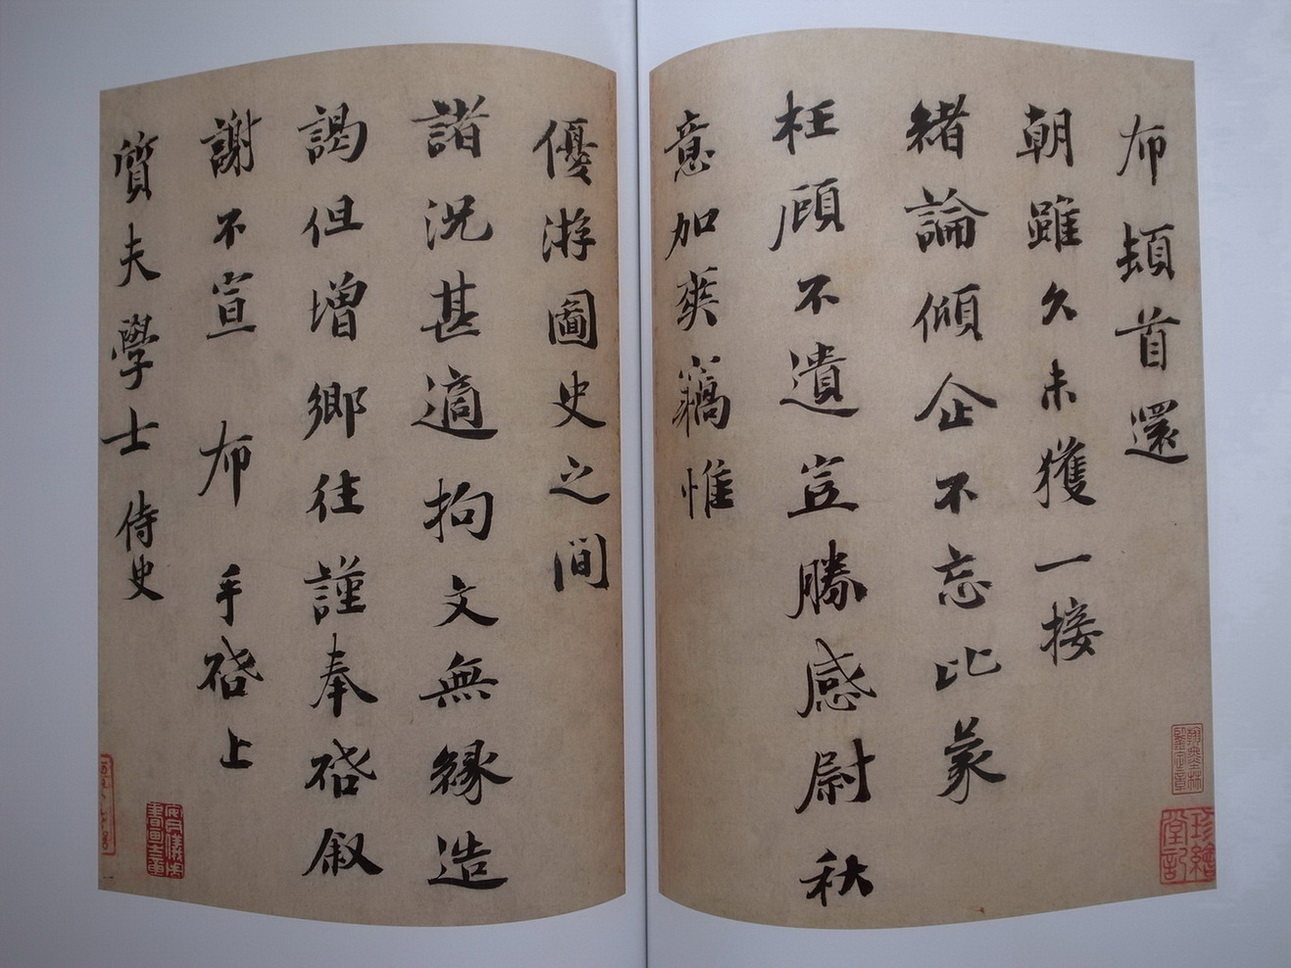 布頓首還
朝雖久未獲一接
緒論傾企不忘比蒙
枉顧不遺豈勝感尉秋
意加爽竊惟
優游圖史之間
諸況甚適拘文無緣造
謁但增鄉往謹奉啓叙
謝不宣 布 手啓上
質夫學士 侍史
珍繪堂記
安儀周書畫之章